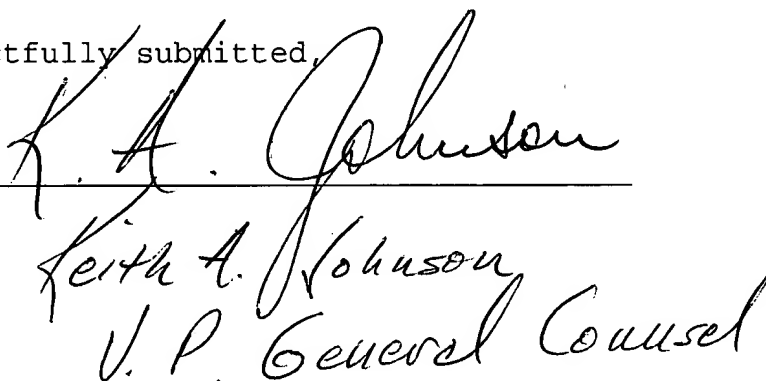 ctfully submitted,
K. A. Johnson
Keith A. Johnson
V. P. General Counsel